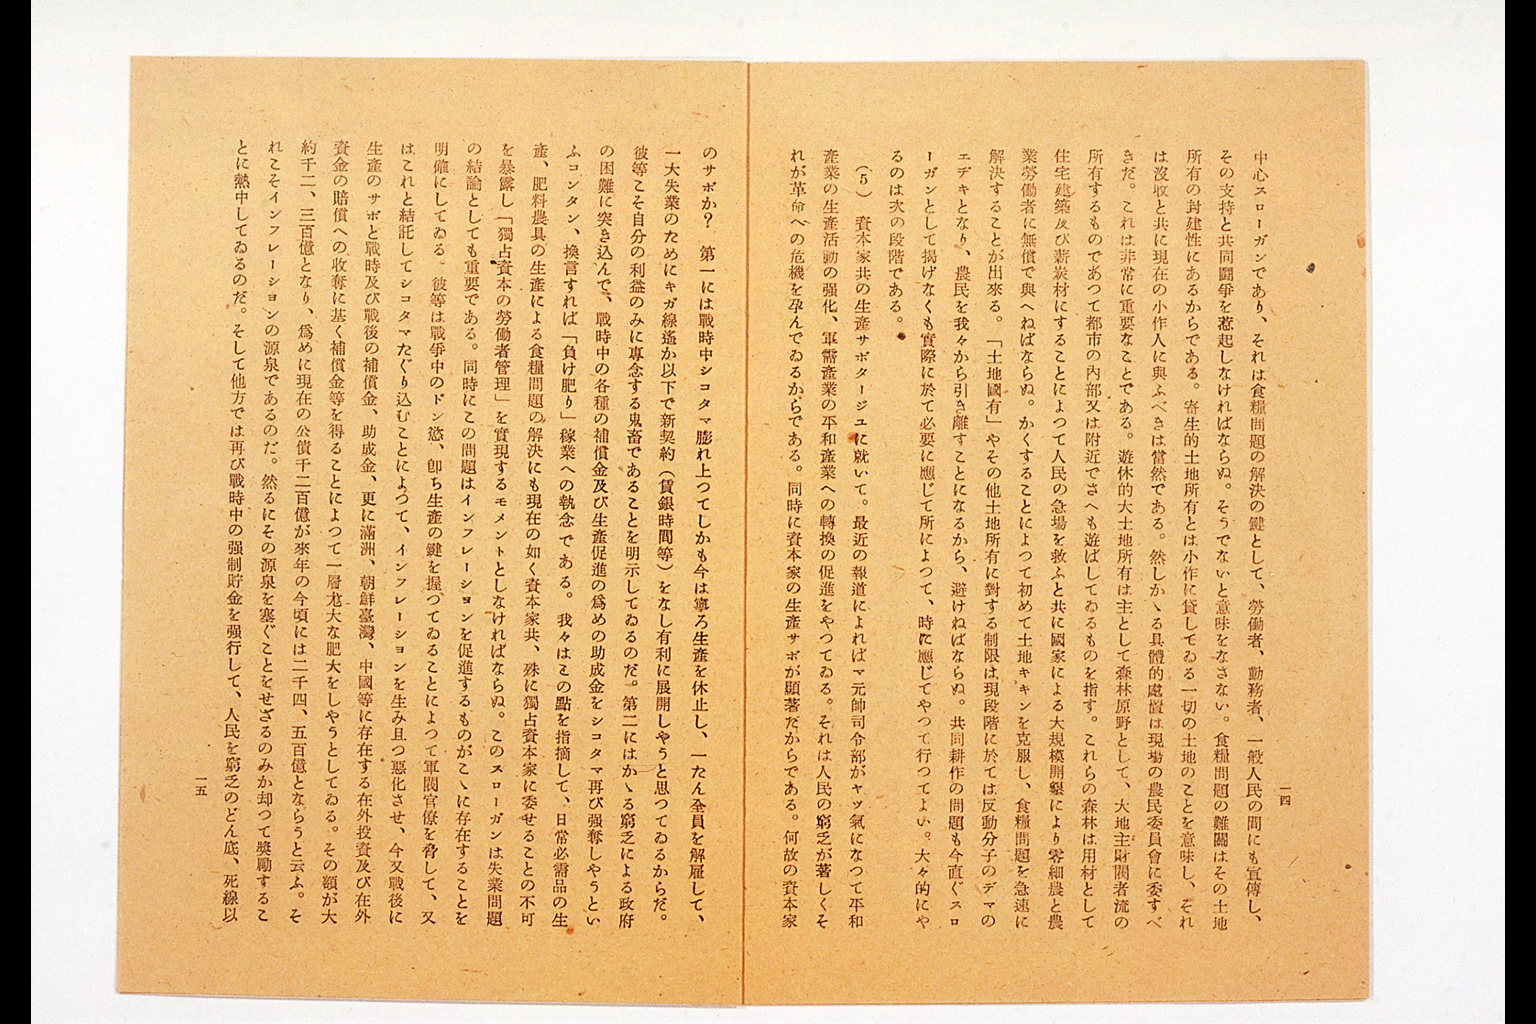 中心スローガンであり、それは食糧問題の解決の鍵として、勞働者、勤務者、一般人民の間にも宣傳し、
その支持と共同鬪爭を惹起しなければならぬ。そうでないと意味をなさない。食糧問題の難關はその土地
所有の封建性にあるからである。寄生的土地所有とは小作に貸してゐる一切の土地のことを意味し、それ
は沒收と共に現在の小作人に與ふべきは當然である。然しかゝる具體的處置は現場の農民委員會に委すべ
きだ。これは非常に重要なことである。遊休的大土地所有は主として森林原野として、大地主財閥者流の
所有するものであつて都市の内部又は附近でさへも遊ばしてゐるものを指す。これらの森林は用材として
住宅建築及び薪炭材にすることによつて人民の急場を救ふと共に國家による大規模開墾により零細農と農
業勞働者に無償で與へねばならぬ。かくすることによつて初めて土地キキンを克服し、食糧問題を急速に
解決することが出來る。「土地國有」やその他土地所有に對する制限は現段階に於ては反動分子のデマの
エヂキとなり、農民を我々から引き離すことになるから、避けねばならぬ。共同耕作の問題も今直ぐスロ
ーガンとして揭げなくも實際に於て必要に應じて所によつて、時に應じてやつて行つてよい。大々的にや
るのは次の段階である。
(5) 資本家共の生產サボタージユに就いて。最近の報道によればマ元帥司令部がヤツ氣になつて平和
產業の生產活動の强化、軍需產業の平和產業への轉換の促進をやつてゐる。それは人民の窮乏が著しくそ
れが革命への危機を孕んでゐるからである。同時に資本家の生產サボが顯著だからである。何故の資本家
一四
のサボか？ 第一には戰時中シコタマ膨れ上つてしかも今は寧ろ生產を休止し、一たん全員を解雇して、
一大失業のためにキガ線遙か以下で新契約(賃銀時間等)をなし有利に展開しやうと思つてゐるからだ。
彼等こそ自分の利益のみに專念する鬼畜であることを明示してゐるのだ。第二にはかゝる窮乏による政府
の困難に突き込んで、戰時中の各種の補償金及び生產促進の爲めの助成金をシコタマ再び强奪しやうとい
ふコンタン、換言すれば「負け肥り」稼業への執念である。我々はこの點を指摘して、日常必需品の生
產、肥料農具の生產による食糧問題の解決にも現在の如く資本家共、殊に獨占資本家に委せることの不可
を暴露し「獨占資本の勞働者管理」を實現するモメントとしなければならぬ。このスローガンは失業問題
の結論としても重要である。同時にこの問題はインフレーシヨンを促進するものがこゝに存在することを
明確にしてゐる。彼等は戰爭中のドン慾、卽ち生產の鍵を握つてゐることによつて軍閥官僚を脅して、又
はこれと結託してシコタマたぐり込むことによつて、インフレーシヨンを生み且つ惡化させ、今又戰後に
生產のサボと戰時及び戰後の補償金、助成金、更に滿洲、朝鮮臺灣、中國等に存在する在外投資及び在外
資金の賠償への收奪に基く補償金等を得ることによつて一層尨大な肥大をしやうとしてゐる。その額が大
約千二、三百億となり、爲めに現在の公債千二百億が來年の今頃には二千四、五百億とならうと云ふ。そ
れこそインフレーシヨンの源泉であるのだ。然るにその源泉を塞ぐことをせざるのみか却つて獎勵するこ
とに熱中してゐるのだ。そして他方では再び戰時中の强制貯金を强行して、人民を窮乏のどん底、死線以
一五